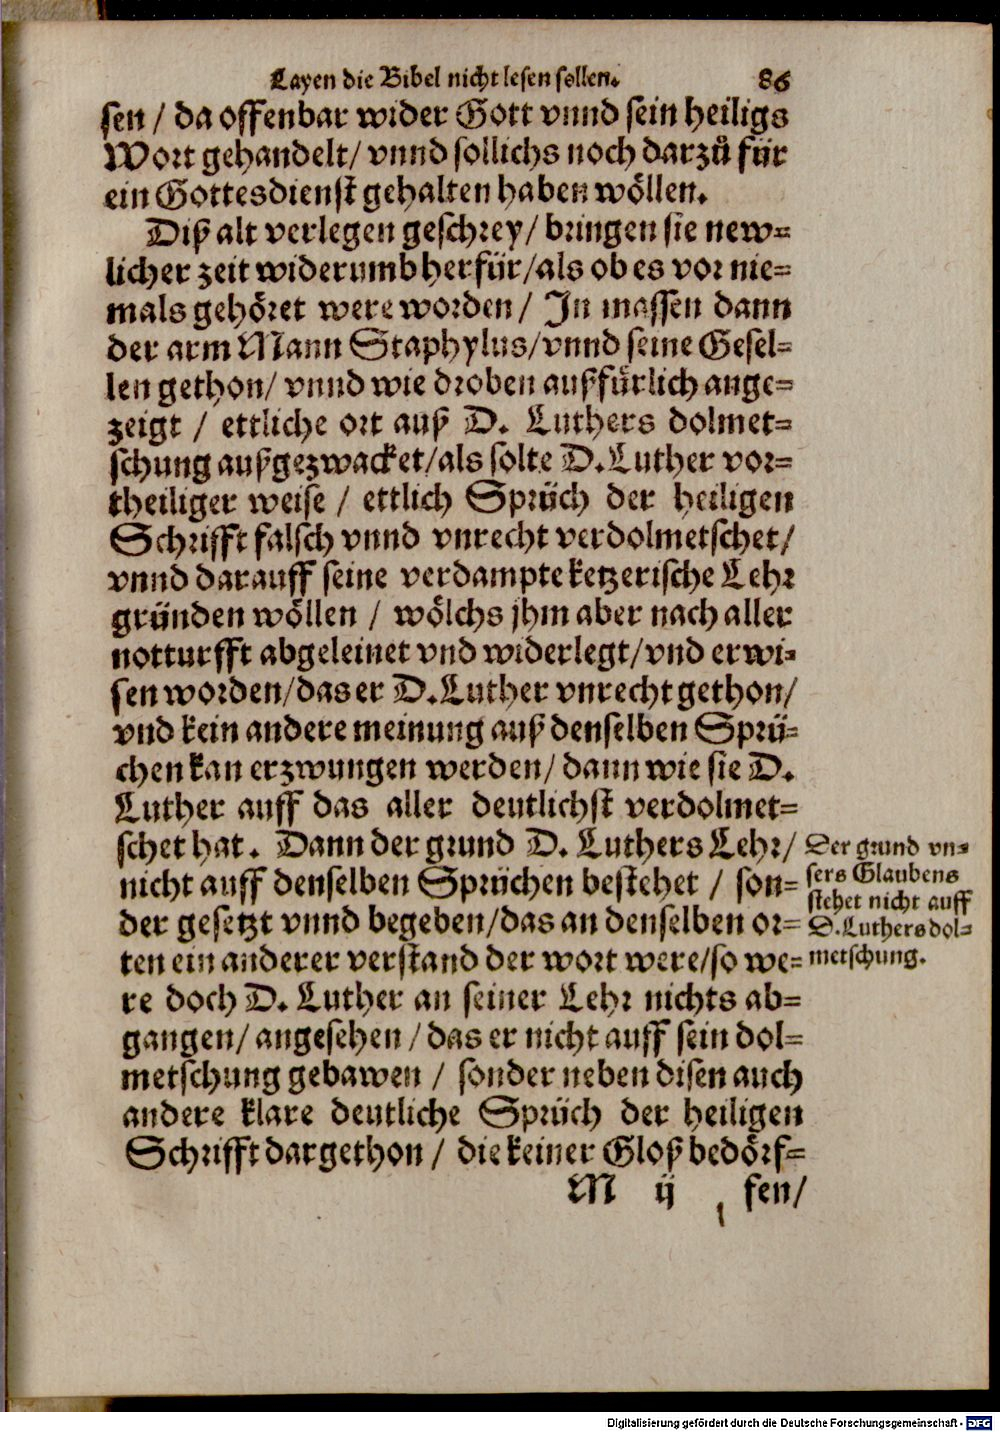 Layen die Bibel nicht lesen sollen. 86
sen / da offenbar wider Gott vnnd sein heiligs
Wort gehandelt/ vnnd sollichs noch darzů für
ein Gottesdienst gehalten haben wöllen.
Diß alt verlegen geschrey/ bringen sie new-
licher zeit widerumb herfür/als ob es vor nie-
mals gehöret were worden / In massen dann
der arm Mann Staphylus/vnnd seine Gesel-
len gethon/ vnnd wie droben außfürlich ange-
zeigt / ettliche ort auß D. Luthers dolmet-
schung außgezwacket/als solte D. Luther vor-
theiliger weise / ettlich Sprüch der heiligen
Schrifft falsch vnnd vnrecht verdolmetschet/
vnnd darauff seine verdampte ketzerische Lehr
gründen wöllen / wölchs jhm aber nach aller
notturfft abgeleinet vnd widerlegt/vnd erwi-
sen worden/das er D. Luther vnrecht gethon/
vnd kein andere meinung auß denselben Sprü-
chen kan erzwungen werden/ dann wie sie D.
Luther auff das aller deutlichst verdolmet-
schet hat. Dann der grund D. Luthers Lehr/
nicht auff denselben Sprüchen bestehet / son-
der gesetzt vnnd begeben/das an denselben or-
ten ein anderer verstand der wort were/so we-
re doch D. Luther an seiner Lehr nichts ab-
gangen/ angesehen / das er nicht auff sein dol-
metschung gebawen / sonder neben disen auch
andere klare deutliche Sprüch der heiligen
Schrifft dargethon / die keiner Gloß bedörf-
M ij fen/
Der grund vn-
sers Glaubens
stehet nicht auff
D. Luthers dol-
metschung.
Digitalisierung gefördert durch die Deutsche Forschungsgemeinschaft - DFG